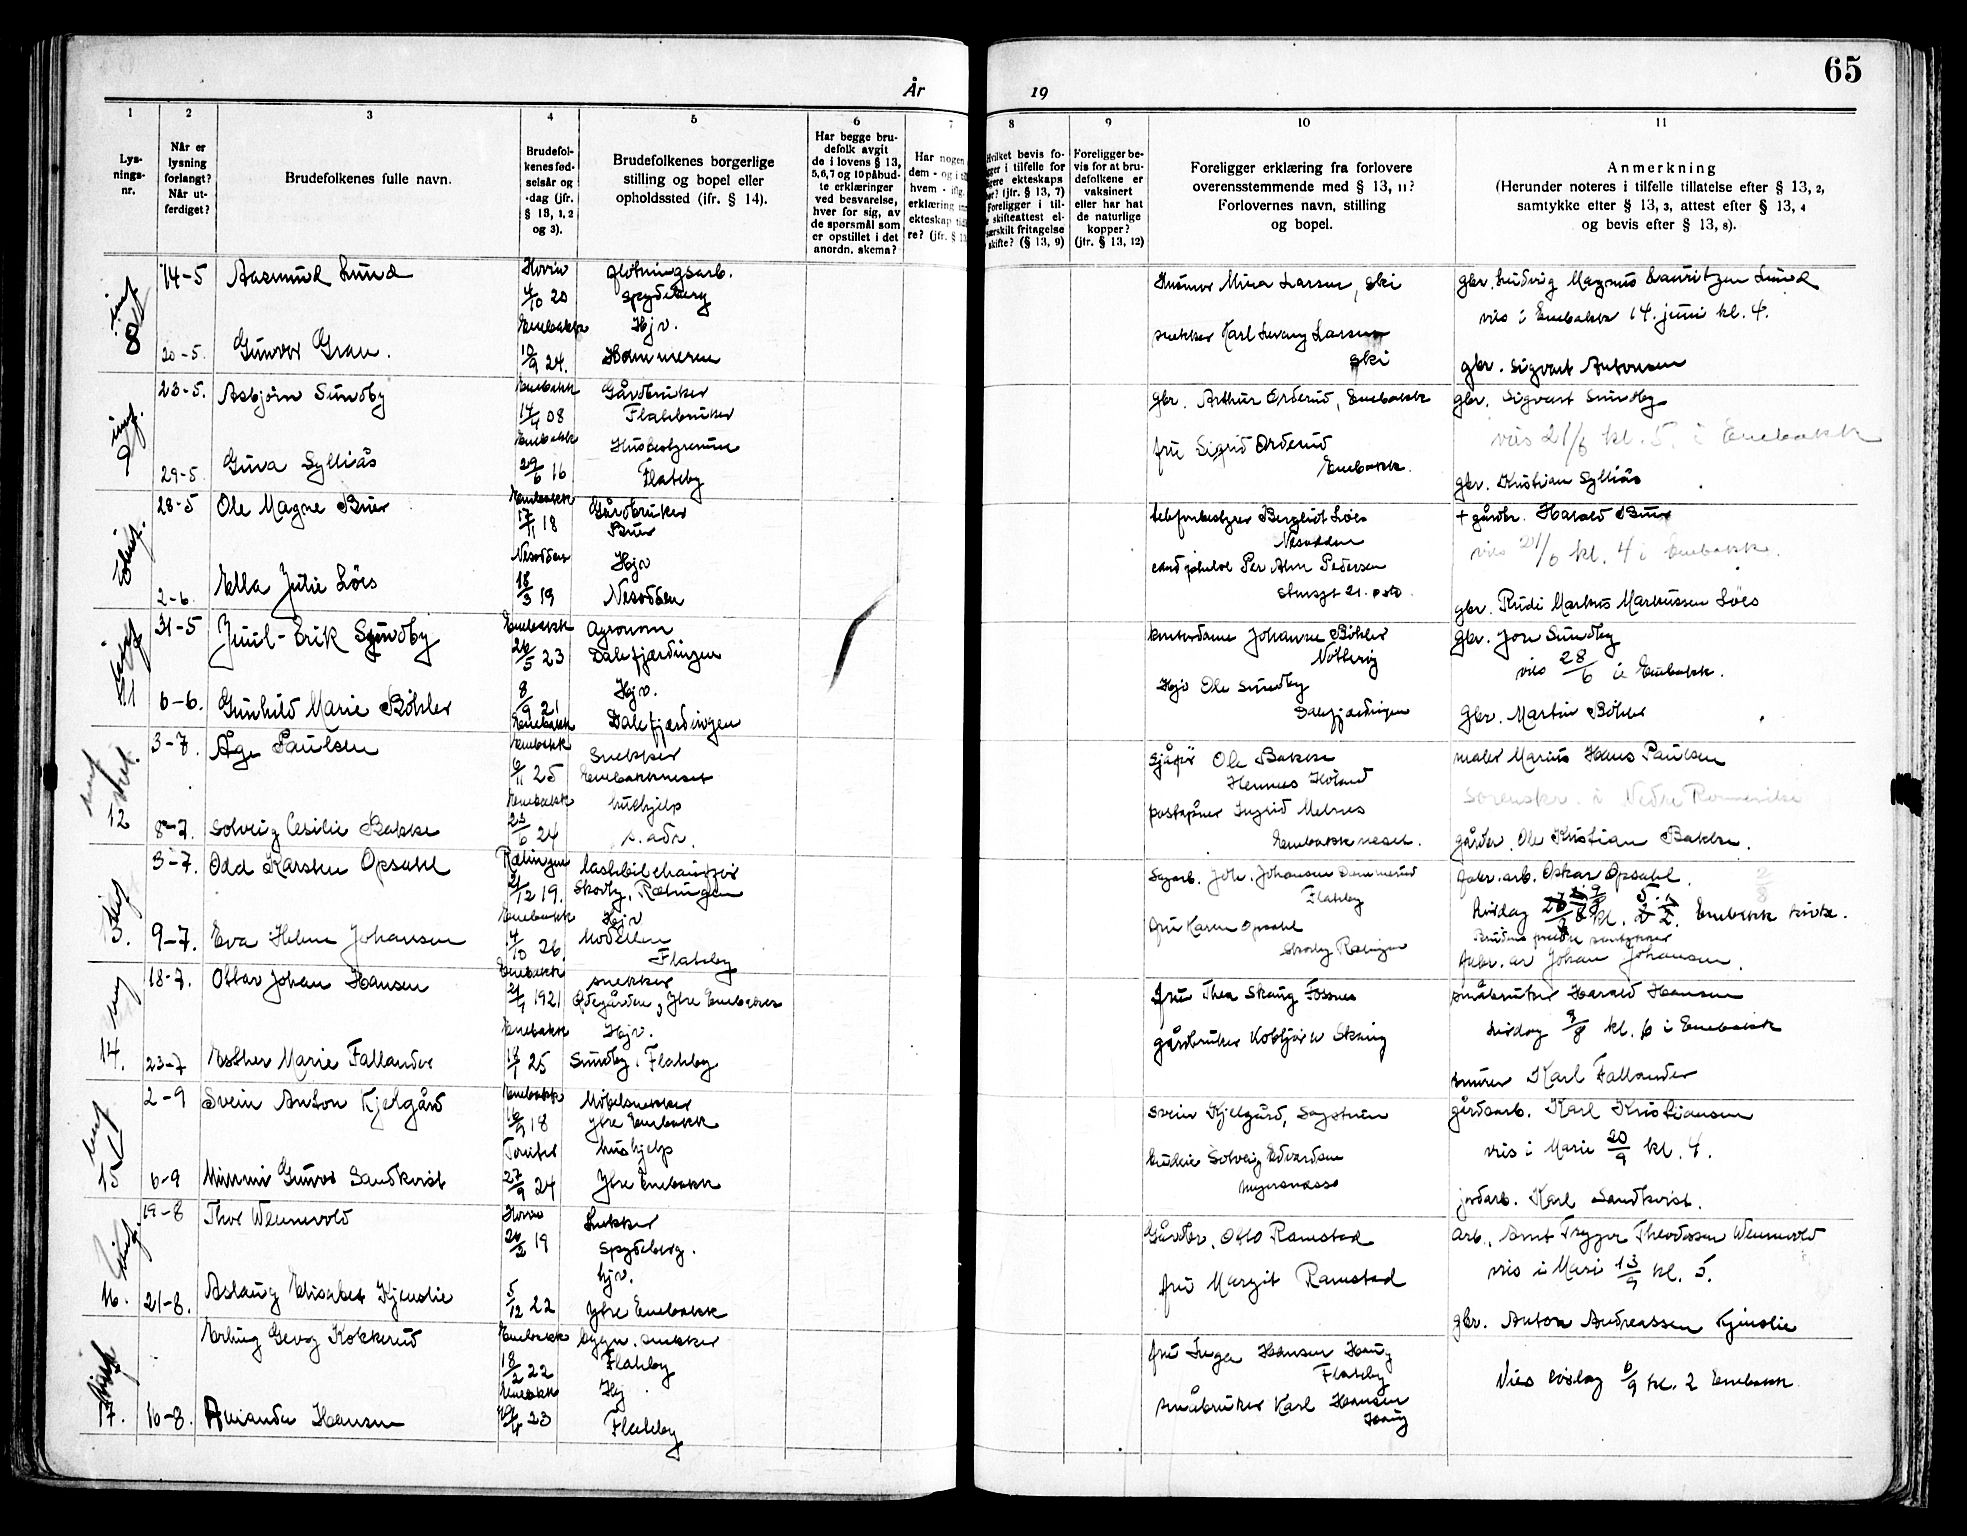 65
År
19
1
2
3
4
5
6
7
8
9
10
11
Lys-
nings-
nr.
Når er
lysning
forlangt?
Når ut-
ferdiget?
Brudefolkenes fulle navn.
Brudefol-
kenes fød-
selsår og
-dag (jfr.
§ 13, 1, 2
og 3).
Brudefolkenes borgerlige
stilling og bopel eller
opholdssted (ifr. § 14).
Har begge bru-
defolk avgit
de i lovens § 13,
5, 6, 7 og 10 påbud-
te erklæringer
ved besvarelse,
hver for sig, av
de spørsmål som
er opstillet i det
anordn. skema?
Har nogen
dem - og i
hvem - iflg.
erklæring
ekteskap
re? (jfr. § 13
Hvilket bevis fo-
i tilfelle for
ekteskaps
(jfr. § 13, 7)
Foreligger i til-
skifteattest el-
særskilt fritagelse
skifte? (§ 13, 9)
Foreligger be-
vis for at bru-
defolkene er
vaksinert
eller har hat
de naturlige
kopper?
(jfr. § 13, 12)
Foreligger erklæring fra forlovere
overensstemmende med § 13, 11?
Forlovernes navn, stilling
og bopel.
Anmerkning
(Herunder noteres i tilfelle tillatelse efter § 13, 2,
samtykke efter § 13, 3, attest efter § 13, 4
og bevis efter § 13, 8).
8
14-5
Aasmund Lund
4/10 20
fløtningsarb.
Spydeberg
Larsen, Ski
gbr. Ludvig Magnus Lauritzen Lund
Enebakk
Hjv.
vies i Enebakk 14. juni kl. 4.
20-5.
Gunvor Gran.
10/9 24.
Hammeren
snekker Karl Larsen
Ski
gbr. Sigvart Antonsen
9
23-5.
Asbjørn Sundby
Enebakk
14/4 08
Gårdbruker
gbr. Arthur Orderud, Enebakk
gbr. Sigvart Sundby
vies 21/6 kl. 5 i Enebakk
29-5
Gina Sylliås
Enebakk
29/6 16
Husbestyrerinne
Flateby
fru Sigrid Orderud
Enebakk.
gbr. Kristian Sylliås
28-5
Ole Magne Buer
Enebakk
17/11 18
Gårdbruker
Buer
Bergliot Løes
Nesodden
+ gårdbr. Harald Buer
vies 21/6 kl. 4 i Enebakk.
2-6.
Ella Julie Löes
Nesodden
18/3 19
Hjv
Nesodden
Per Alm Pedersen
gbr. Rudi Markus Markussen Löes
11
31-5
Juul-Erik Sundby
Enebakk
26/5 23
agronom
Dalefjerdingen
Johanne Böhler
gbr. Jon Sundby
vies 28/6 i Enebakk.
6-6.
Gunhild Marie Böhler
8/9 21
Enebakk
Hjv.
Dalefjerdingen
Ole Sundby
Dalefjerdingen
Gbr. Martin Böhler
12
3-7.
Åge Paulsen
Enebakk
6/11 25
Snekker
Enebakkneset
sjåfør Ole Bakke
Hemnes Höland
maler Marius Hans Paulsen
Sorenskr. i Nedre Romerike
8-7.
Solveig Cesilie Bakke
Enebakk
23/6 24
hushjelp
s. adr.
poståpner Ingrid Melnes
Enebakkneset.
gårdbr. Ole Kristian Bakke.
13
3-7.
Odd Karsten Opsahl
Rælingen
21/12 19.
lastebilchauffør
Skovby, Rælingen
Sagarb. Joh. Johansen Dammerud
Flateby
fabr. arb. Oskar Opsahl.
Enebakk kirke.
9-7.
Eva Helene Johansen
Enebakk
14/10 26.
Hjv
Modellen
Flateby
fru Karen Opsahl
Skovby Rælingen
Johan Johansen.
14.
18-7.
Ottar Johan Hansen
Enebakk
1921
snekker
Ødegården, Ytre Enebakk
fru Thea Skaug Fossnes
småbruker Harald Hansen
lørdag 9/8 kl. 6 i Enebakk
23-7
Esther Marie Fallander
Enebakk
25
Hjv.
Sundby, Flateby
gårdbruker Skaug
murer Karl Fallander
15
2-9
Svein Anton Kjelgård
Enebakk
16/9 18
Möbelsnekker
Ytre Enebakk
Svein Kjelgård,
gårdsarb. Karl Kristiansen
vies i Marie 20/9 kl. 4.
6-9
Mimmi Gunvor Sandkvist
27/9 24
hushjelp
Ytre Enebakk
Solveig Edvardsen
jordarb. Karl Sandkvist.
16.
19-8
Thor Wennevold
26/2 19
Snekker
Spydeberg.
Gårdbr. Otto Ramstad
arb. Arnt Trygve Theodorsen Wennevold
vies i Mari 13/9 kl. 5.
21-8.
Aslaug Elisabet Kjenslie
5/12 22
hjv.
Ytre Enebakk
fru Margit Ramstad
gbr. Anton Andreassen Kjenslie
17.
Erling Georg Kokkerud
Enebakk
18/2 22
bygn. snekker
Flateby
fru Inga Hansen Haug
Flateby
Vies lørdag 6/9 kl. 2 Enebakk
16-8.
Amanda Hansen
Enebakk
23
Hj.
Flateby
småbruker Karl Hansen
Haug